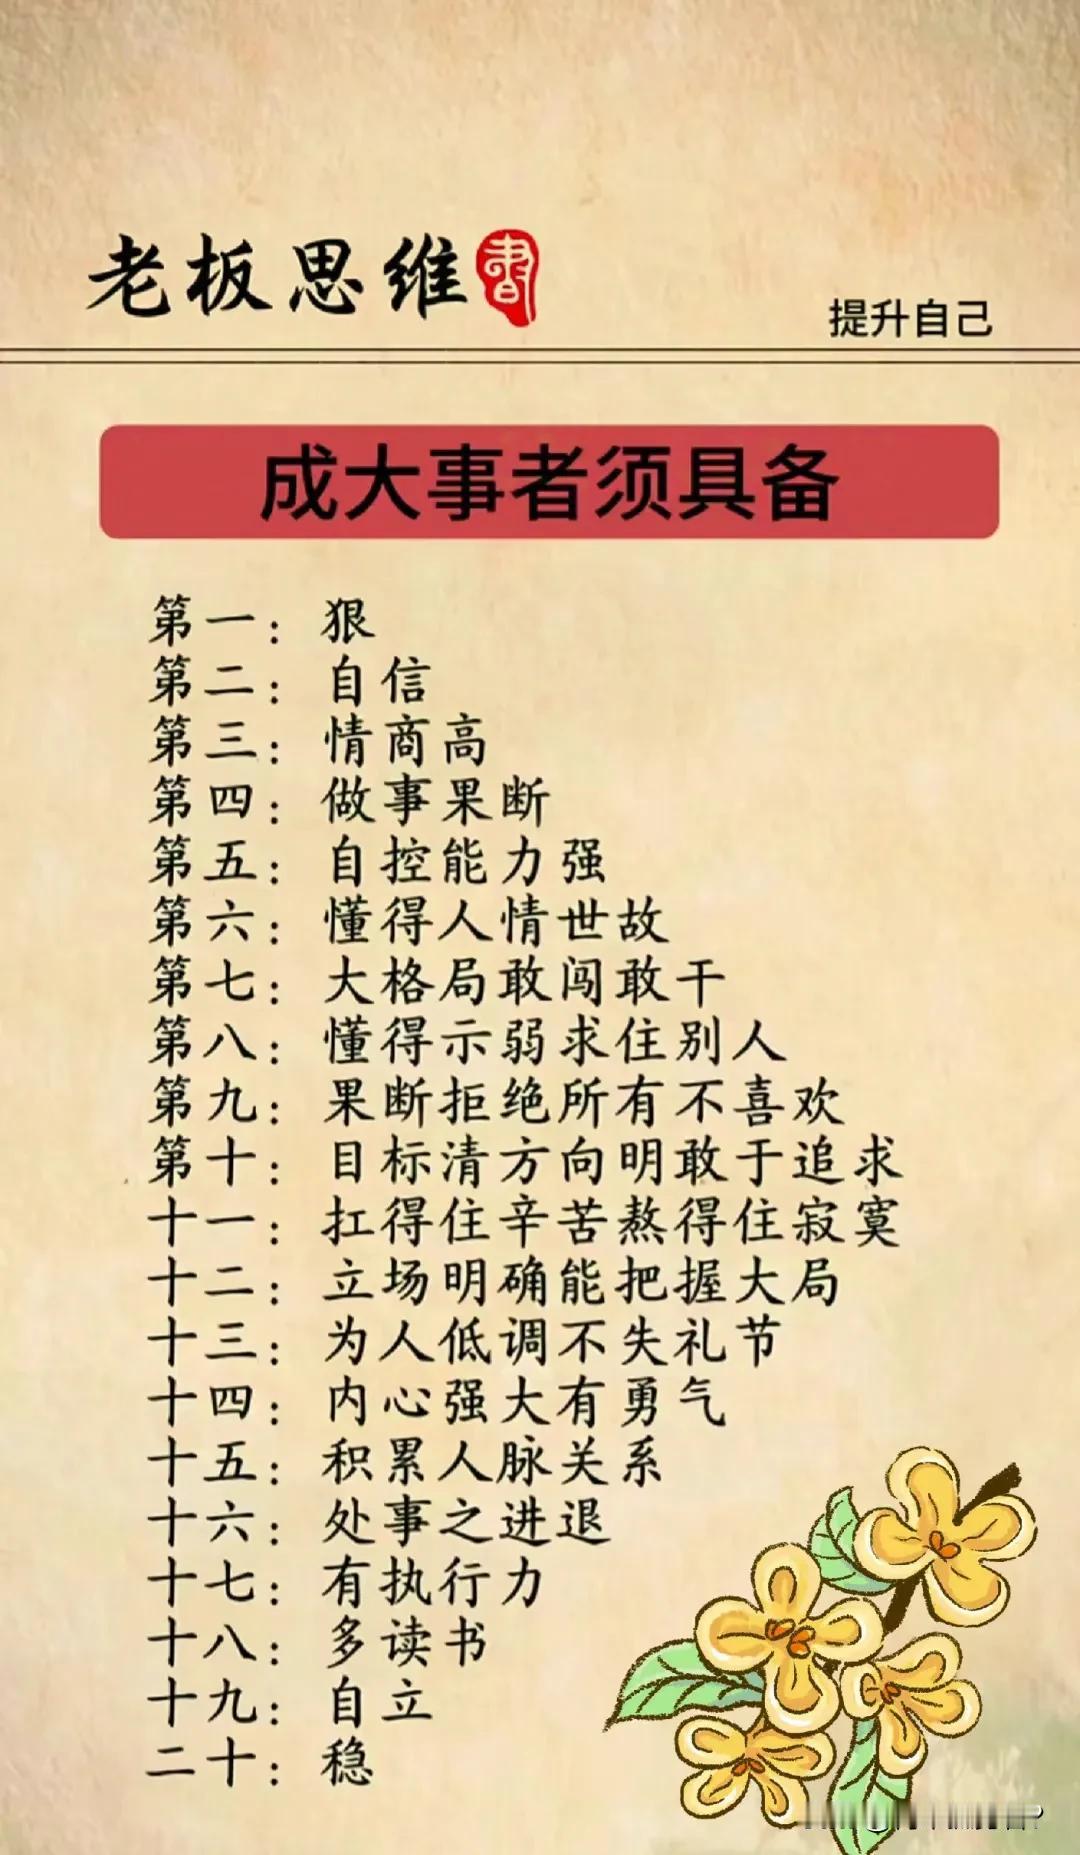 老板思维
書
提升自己
成大事者须具备
第一：狠
第二：自信
第三：情商高
第四：做事果断
第五：自控能力强
第六：懂得人情世故
第七：大格局敢闯敢干
第八：懂得示弱求住别人
第九：果断拒绝所有不喜欢
第十：目标清方向明敢于追求
十一：扛得住辛苦熬得住寂寞
十二：立场明确能把握大局
十三：为人低调不失礼节
十四：内心强大有勇气
十五：积累人脉关系
十六：处事之进退
十七：有执行力
十八：多读书
十九：自立
二十：稳